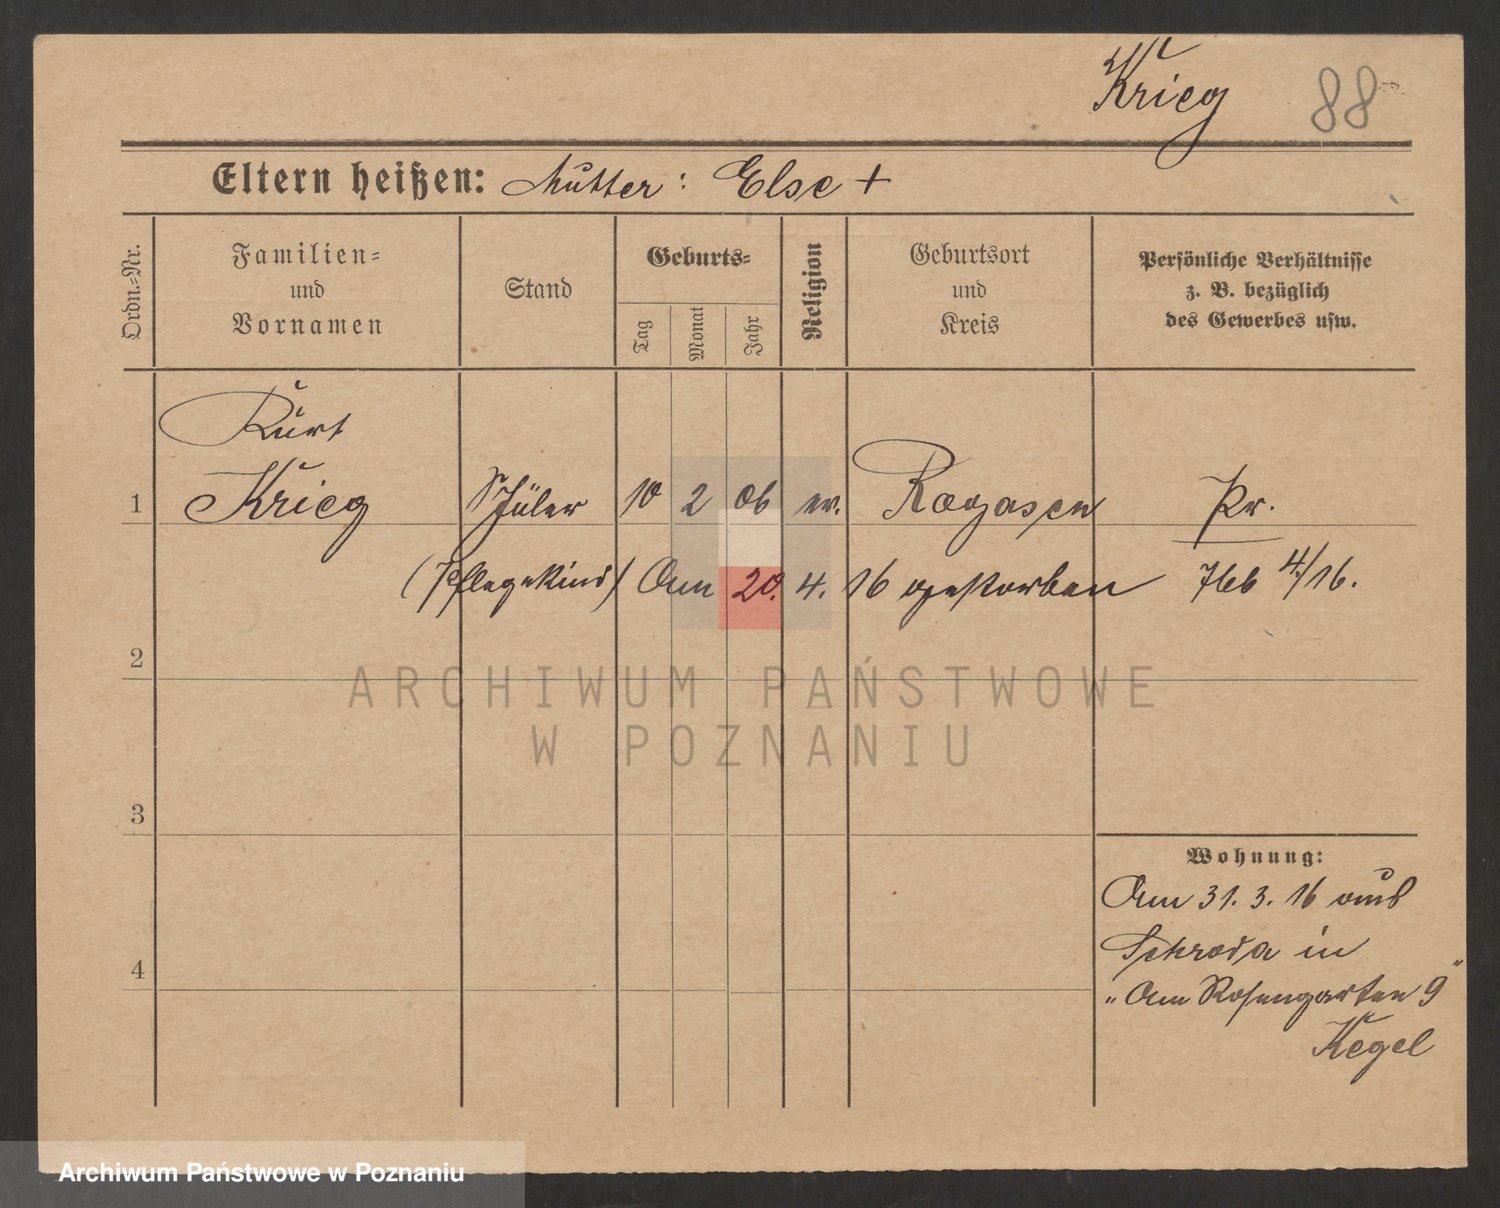 Krieg 88
Eltern heißen: Mutter: Else +
Ordn.-Nr.
Familien-
und
Vornamen
Stand
Geburts-
Tag
Monat
Jahr
Religion
Geburtsort
und
Kreis
Persönliche Verhältnisse
z. B. bezüglich
des Gewerbes usw.
Kurt
1 Krieg Schüler 10 2 06 ev. Rogasen Pr.
(Pflegekind) Am 20. 4. 16 gestorben 4/16.
2
ARCHIWUM PAŃSTWOWE
W POZNANIU
3
Wohnung:
Am 31. 3. 16 aus
Schroda in
4
"Am Rosengarten 9"
Kegel
Archiwum Państwowe w Poznaniu